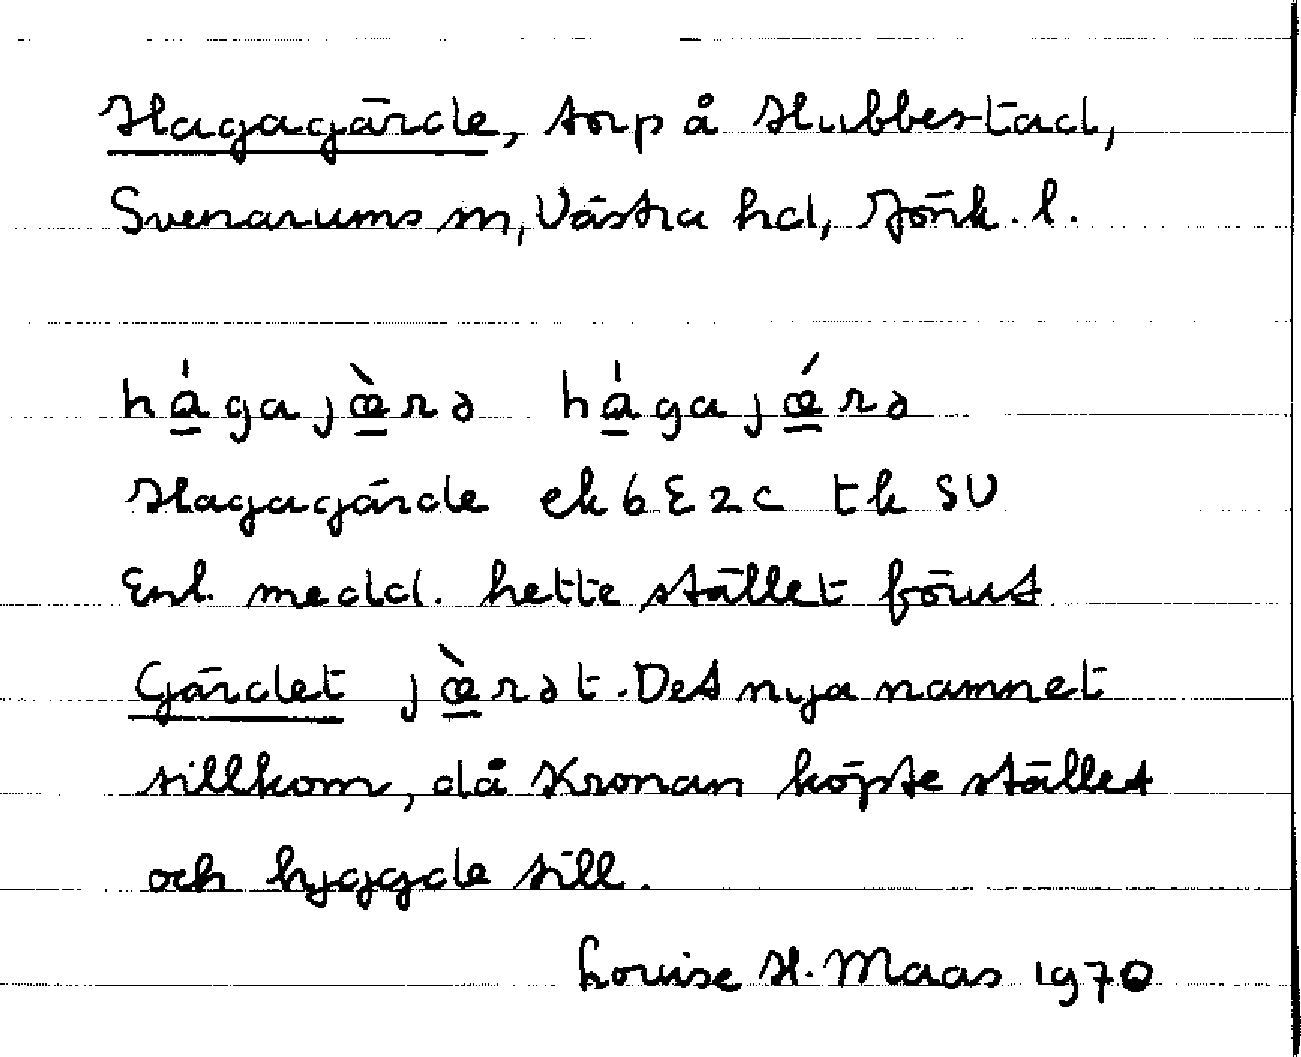 Hagagärde, torp å Hubbestad,
Svenarums sn, Västra hd, Jönk. l.
hágajæ̀rə hágajǽrə
Hagagärde ek 6E2c tk SV
Enl. medd. hette stället först
Gärdet jæ̀rət. Det nya namnet
tillkom, då Kronan köpte stället
och byggde till.
Louise H. Maas 1970